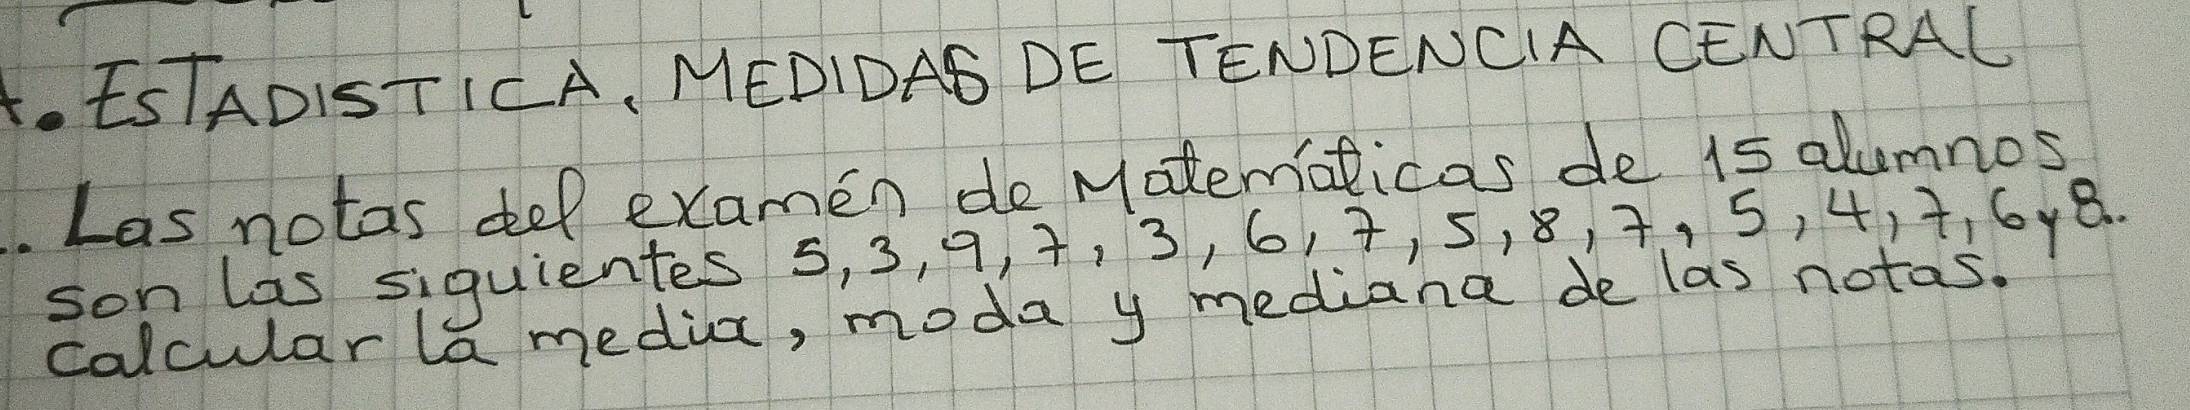 . ESTADISTICA, MEDIDAS DE TENDENCIA CENTRAL
.. Las notas del examén de Matemáticas de 15 alumnos
son las siguientes 5, 3, 9, 7, 3, 6, 7, 5, 8, 7, 5, 4, 7, 6 y 8.
calcular la media, moda y mediana de las notas.